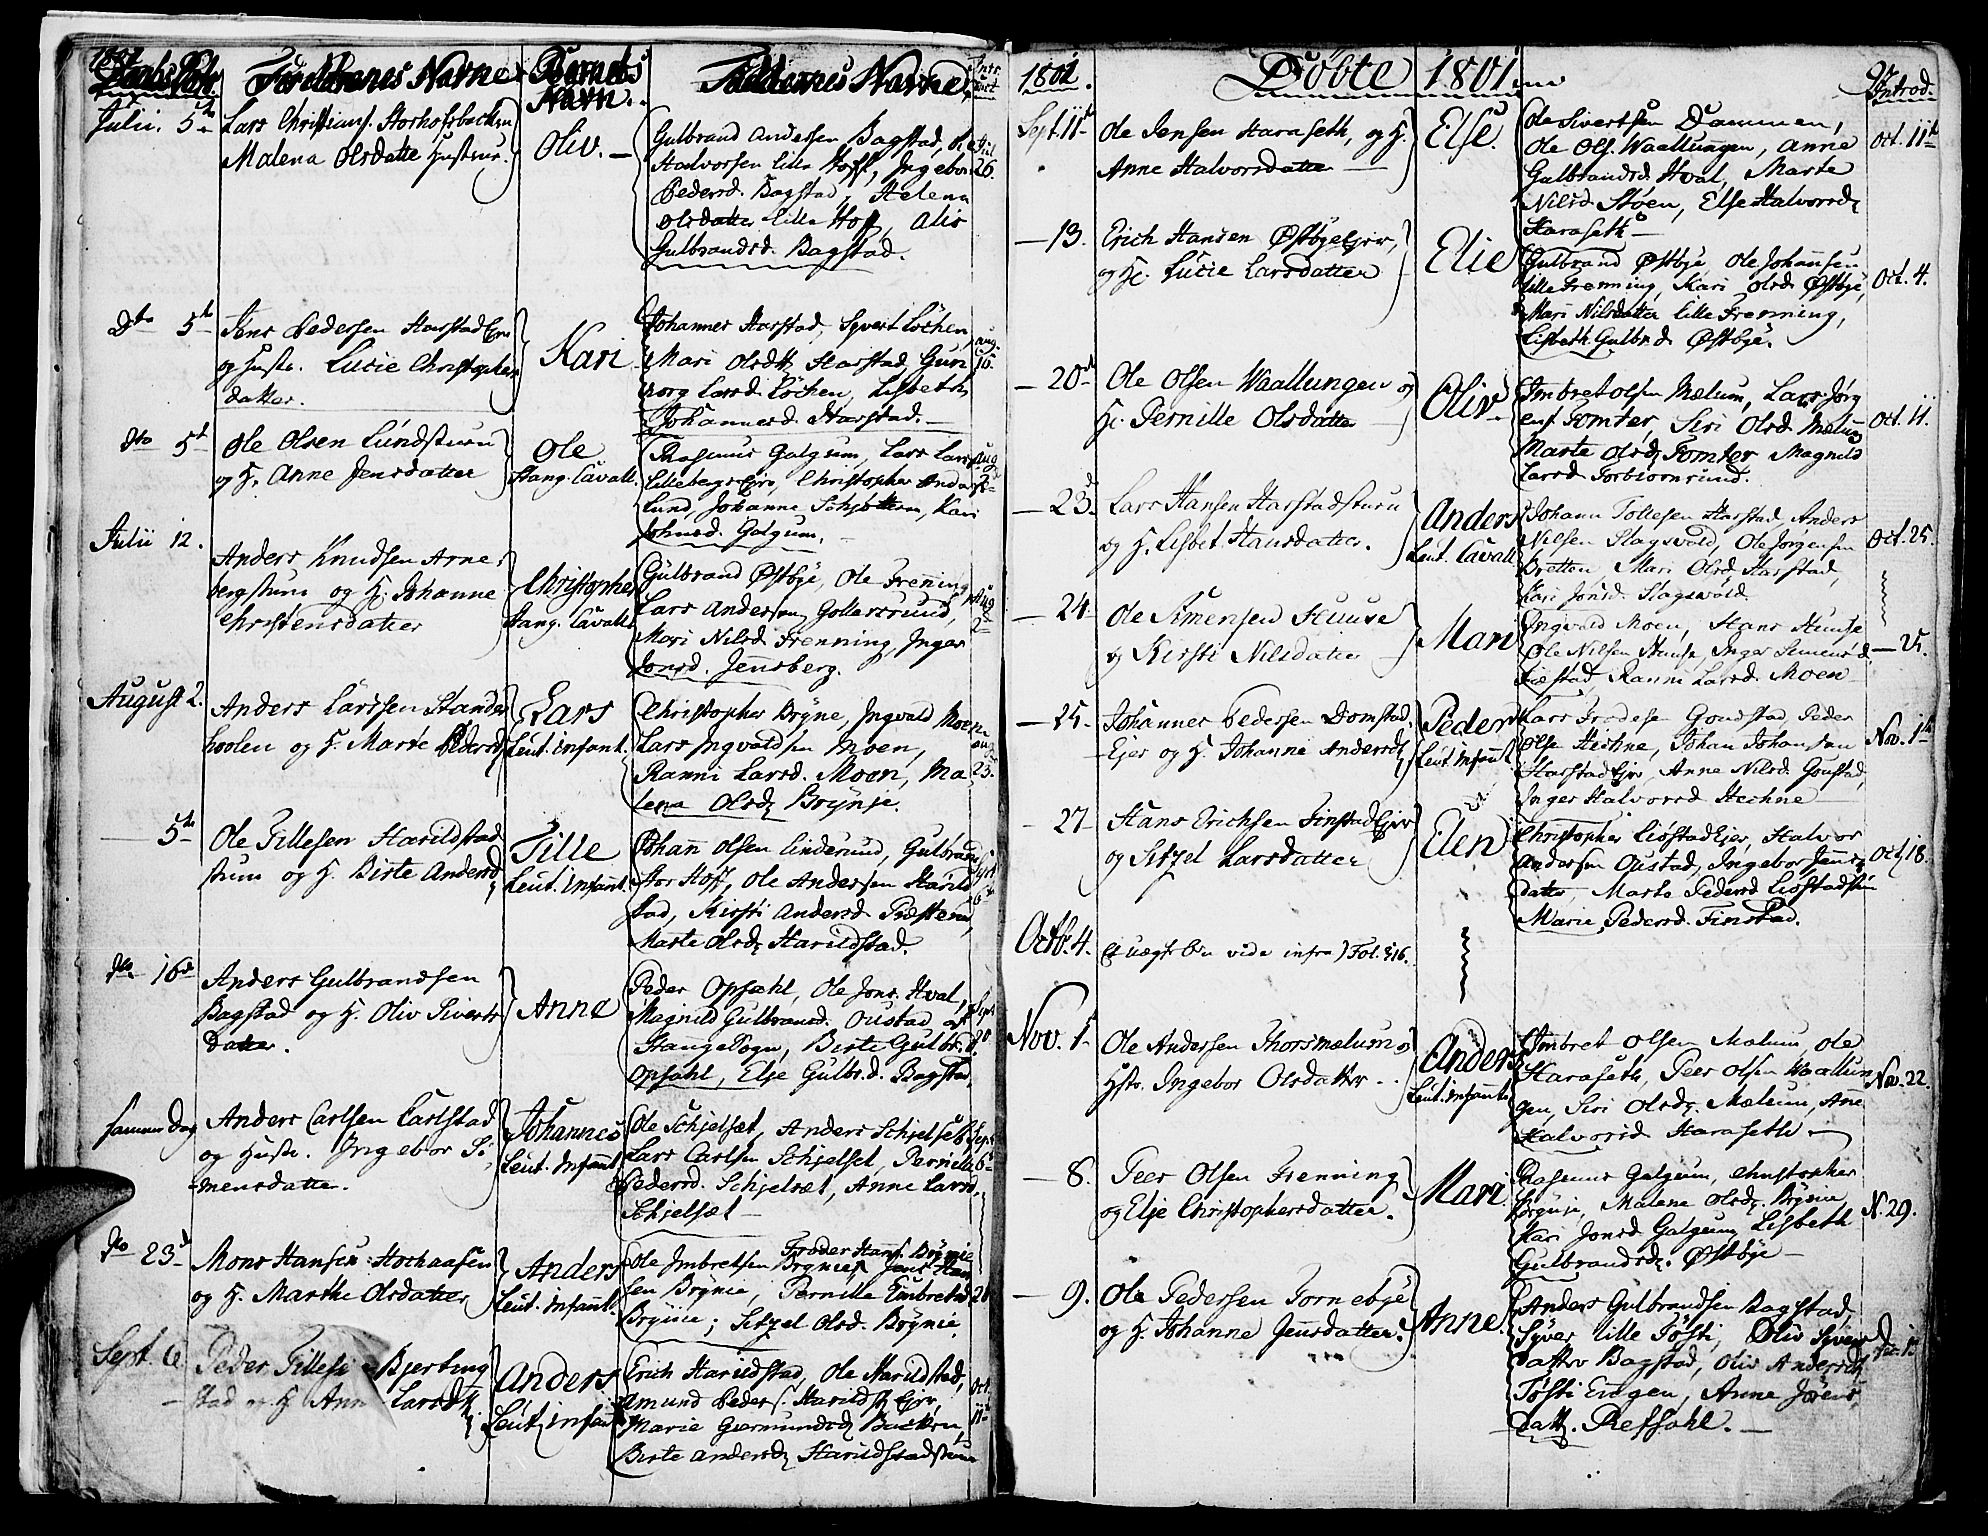 1801
Daabs Dato Forældrenes Navne Barnets Navn. Faddernes Navne Intr.
Julii. 5te Lars Christians. Storhofsbachen
Malena Olsdatter Hustrue.
Oliv.
Gulbrand Andersen Bagstad,
Halvorsen lille Hoff, Ingebor
Pedersd. Bagstad, Helena
Olsdatter lille Hoff, Oliv
Gulbrandsd. Bagstad.
Jul 26.
Dto 5t Jens Pedersen Harstad Ejer
og Hustr. Lucie Christophers
datter.
Kari
Johannes Harstad, Syvert Löchen,
Mari Olsdtr Harstad, Gun
borg Larsd. Löchen, Lisbeth
Johannesd. Harstad.
Aug. 10.
dto 5t Ole Olsen Lundsturu
og H. Anne Jensdatter
Ole
Stang. Cavall.
Rasmus Galgum, Lars Lars.
Lilleberg Eje, Christopher Anders.
Lund, Johanne Schjøttern, Kari
Johnsd. Galgum.
Aug. 2
Julii 12. Anders Knudsen Arne-
bergstuen og H. Johanne
Christensdatter
Christopher
Stang. Cavall.
Gulbrand Østbye, Ole Frenning,
Lars Andersen Gollersrund,
Mari Nilsd. Frenning, Inger
Jonsd. Jensberg.
Aug. 2
August 2. Anders Larssen Stander
hoolen og H. Marte Pedersd
Lars
Leut. Infant.
Christopher Bryne, Ingvald Moen
Lars Ingvaldsen Moen,
Ranni Larsd. Moen, Ma
lena Olsd. Brynje.
Aug. 23.
5te Ole Tillesen Harildstad
stuen og H. Birte Andersd
Tille
Leut. Infant.
Johan Olsen Linderud, Gulbrand
Stor Hoff, Ole Andersen Harild
stad, Kirsti Andersd. Præsteru,
Marte Olsd. Harildstad.
dto 16de Anders Gulbrandsen
Bagstad og H. Oliv Siverts
Datter.
Anne
Peder Opsahl, Ole Jons. Hval,
Magnild Gulbrandsd. Oustad af
Stange Sogn, Birte Gulbr.d.
Opsahl, Else Gulbr.d. Bagstad.
Sept. 20
samme Dag Anders Carlsen Carlstad
og Hustr. Ingebor Si-
mensdatter.
Johannes
Leut. Infant.
Ole Schjelset, Anders Schjelset,
Lars Carlsen Schjelset, Pernille
Pedersd. Schjelset, Anne Larsd.
Schjelsæt
Sept. 6
do 23d Mons Hansen Hochaasen
og H. Marthe Olsdatter
Anders
Leut. Infant.
Froder Hans. Brynie
Ole Imbretsen Brynie, Jens Han
sen Brynie, Pernille Embretsd
Brynie; Sitzel Olsd. Brynie.
20
Sept. 6 Peder Tilles Bjerting
stad og H. Anne Larsdtr
Anders
Leut. Infant.
Erich Harildstad, Ole Harildstad,
Amund Peders. Harilds. Eier,
Marie Giermundsd. Backen,
Birte Andersd. Harildstadstuen
Oct. 11
1801. Döbte 1801
Introd.
Sept. 11te Ole Jensen Haraseth, og H.
Anne Halvorsdatter
Else.
Ole Sivertsen Dammen,
Ole Ols. Waallungen, Anne
Gulbrandsd. Hval, Marte
Nilsd. Støen, Else Halvorsd.
Haraseth
Oct. 11te
13. Erich Hansen Østbye Ejer,
og H. Lucie Larsdatter
Elie
Gulbrand Østbye, Ole Johansen
lille Frenning, Kari Olsd. Østbye,
Mari Nilsdatter lille Frenning,
Lisbeth Gulbr.d. Østbye.
Oct. 4.
20de Ole Olsen Waallungen og
H. Pernille Olsdatter
Oliv.
Imbret Olsen Mælum, Lars Jörg
ens. Tomter, Siri Olsd. Mælum
Marte Olsd. Tomter, Magnild
Larsd. Torbiørnsrund.
Oct. 11.
23d Lars Hansen Harstadstuen
og H. Lisbet Hansdatter.
Anders
Leut. Cavall.
Johann Tollesen Harstad, Anders
Nilsen Slagsvold, Ole Jörgensen
Bretten, Mari Olsd. Harstad,
Kari Jonsd. Slagsvold.
Oct. 25.
24. Ole Simensen Huuse
og Kirsti Nilsdatter
Mari
Ingvald Moen, Hans Huuse
Ole Nilsen Huuse, Inger Simensd.
Fiestad, Ranni Larsd. Moen
25.
25. Johannes Pedersen Domstad
Ejer og H. Johanne Andersd.
Peder
Leut. Infant
Lars Frodesen Goudstad, Peder
Olsen Hechne, Johan Johansen
Harstad Eje, Anne Nilsd. Goustad,
Inger Halvorsd Hechne
Nov. 1te
27 Hans Erichsen Finstad Ejer
og Sitzel Larsdatter
Elen
Christopher Liøstad Ejer, Halvor
Andersen Oustad, Ingebor Jens
datter, Marte Pedersd Liøstadstu
Marie Pedersd. Finstad.
Oct. 18.
Octb. 4. Et uægte Bn vide infra) Fol. 316.
Nov. 1. Ole Andersen Thorsmælum og
Hstr. Ingebor Olsdatter.
Anders
Leut. Infant.
Imbret Olsen Mælum, Ole
Haraseth, Peer Olsen Waallun
gen, Siri Olsd. Mælum, Ane
Halvorsd. Haraseth
Nov. 22.
8. Peer Olsen Frenning
og Else Christophersdatter.
Mari.
Rasmus Galgum, Christopher
Brynje, Malene Olsd. Brynie,
Kari Jonsd. Galgum, Lisbeth
Gulbrandsd. Østbye
N. 29.
9. Ole Pedersen Tornebye
og H. Johanne Jensdatter.
Anne
Anders Gulbrandsen Bagstad,
Syver lille Tösti, Oliv Siverts
datter Bagstad, Oliv Andersd.
Tösti Engen, Anne Jörens
datt. Refsahl.